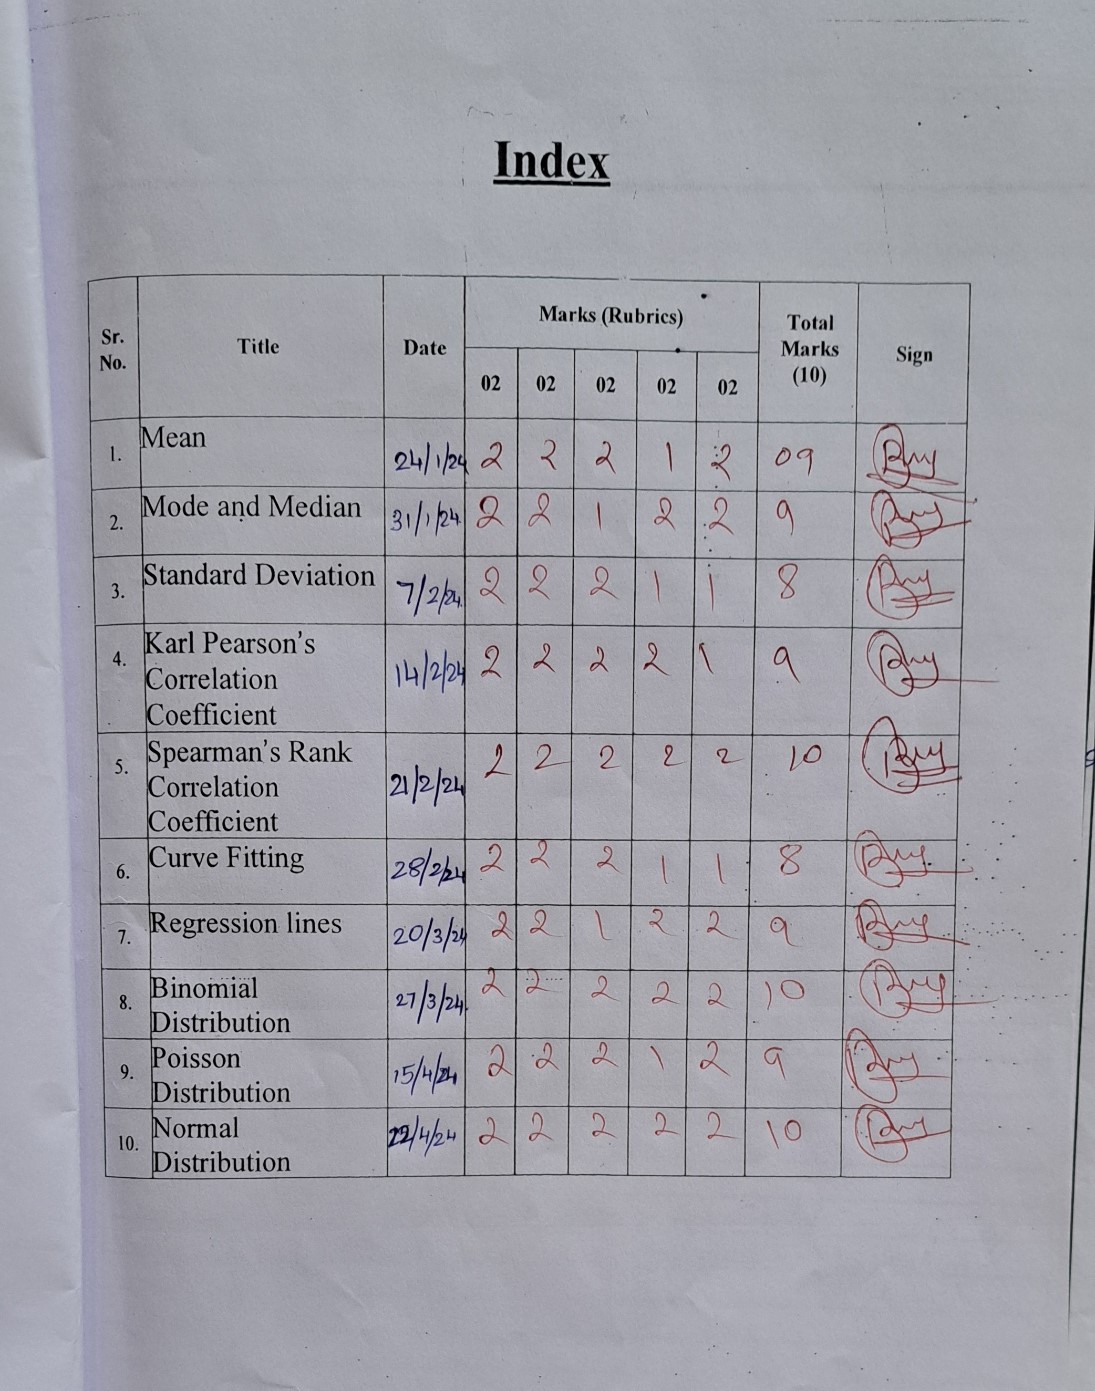 Index
Sr. No. Title Date Marks (Rubrics) Total Marks (10) Sign
02 02 02 02 02
1. Mean 24/1/24 2 2 2 1 2 09
2. Mode and Median 31/1/24 2 2 1 2 2 9
3. Standard Deviation 7/2/24 2 2 2 1 1 8
4. Karl Pearson's
Correlation
Coefficient 14/2/24 2 2 2 2 1 9
5. Spearman's Rank
Correlation
Coefficient 21/2/24 2 2 2 2 2 10
6. Curve Fitting 28/2/24 2 2 2 1 1 8
7. Regression lines 20/3/24 2 2 1 2 2 9
8. Binomial
Distribution 27/3/24 2 2 2 2 2 10
9. Poisson
Distribution 15/4/24 2 2 2 1 2 9
10. Normal
Distribution 22/4/24 2 2 2 2 2 10